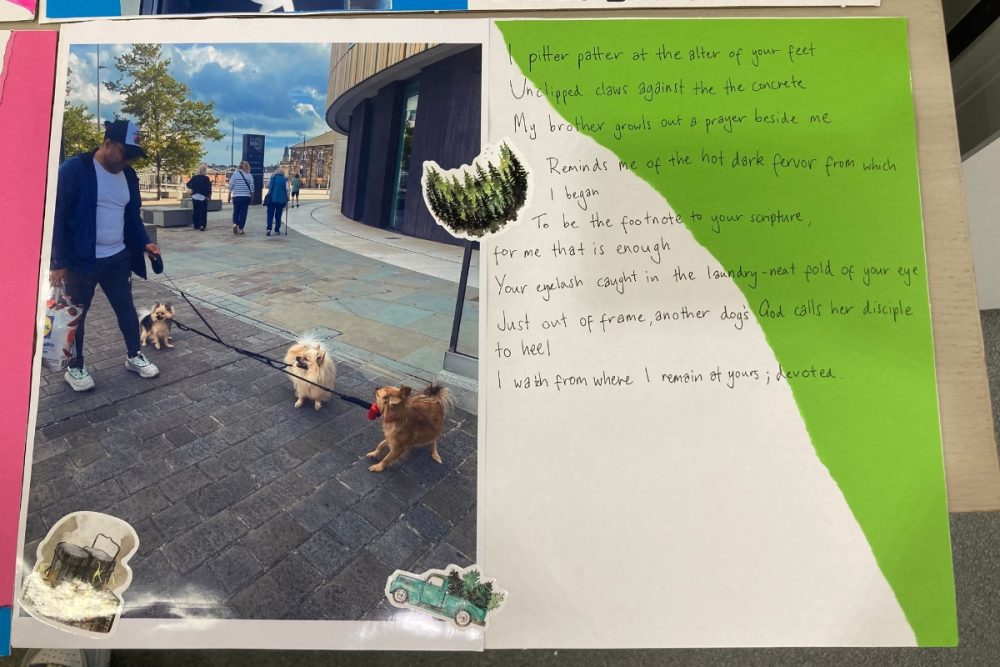 I pitter patter at the alter of your feet
Unclipped claws against the the concrete
My brother growls out a prayer beside me
Reminds me of the hot dark fervor from which
I began
To be the footnote to your scripture,
for me that is enough
Your eyelash caught in the laundry-neat fold of your eye
Just out of frame, another dog's God calls her disciple
to heel
I watch from where I remain at yours; devoted.